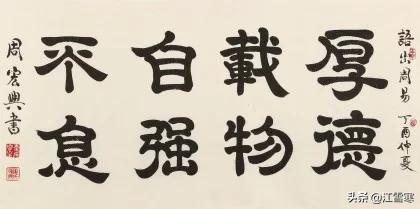 語出周易 丁酉仲夏
厚德
載物
自强
不息
周宏興書
头条 @江雪寒